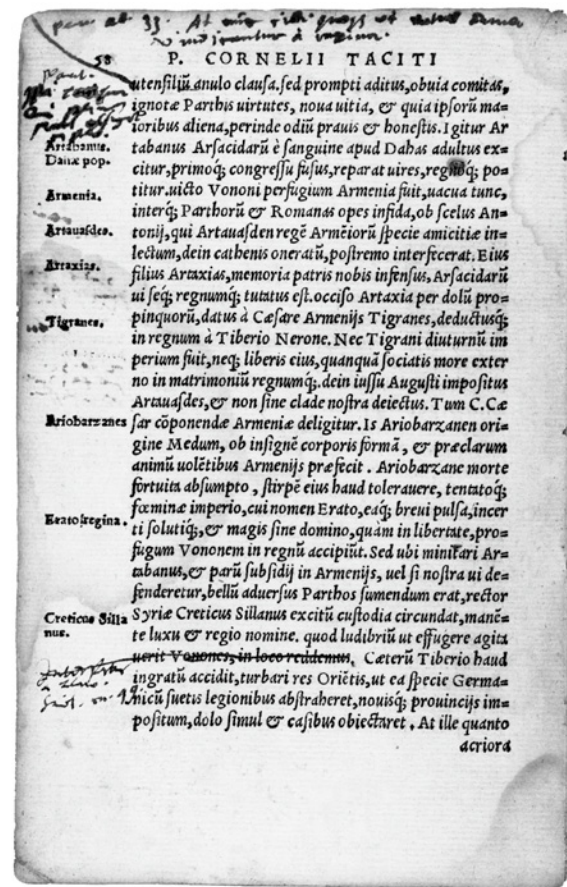 58 P. CORNELII TACITI
utensiliũ anulo clausa.sed prompti aditus,obuia comitas,
ignotæ Parthis uirtutes, noua uitia, & quia ipsorũ ma=
ioribus aliena,perinde odiũ prauis & honestis.Igitur Ar
Artabanus.
tabanus Arsacidarũ è sanguine apud Dahas adultus ex=
Danæ pop.
citur,primoq́; congressu fusus,reparat uires,regnoq́; po=
titur.uicto Vononi perfugium Armenia fuit,uacua tunc,
Armenia.
interq́; Parthorũ & Romanas opes infida,ob scelus An=
Artauasdes.
tonij,qui Artauasden regẽ Armẽiorũ specie amicitiæ in=
lectum,dein cathenis oneratũ,postremo interfecerat. Eius
Artaxias.
filius Artaxias,memoria patris nobis infensus,Arsacidarũ
ui seq́; regnumq́; tutatus est.occiso Artaxia per dolũ pro=
Tigranes.
pinquorũ,datus à Cæsare Armenijs Tigranes,deductusq́;
in regnum à Tiberio Nerone. Nec Tigrani diuturnũ im
perium fuit,neq; liberis eius,quanquã sociatis more exter
no in matrimoniũ regnumq́;.dein iussu Augusti impositus
Artauasdes,& non sine clade nostra deiectus. Tum C.Cæ
Ariobarzanes
sar cõponendæ Armeniæ deligitur. Is Ariobarzanen ori=
gine Medum, ob insignẽ corporis formã, & præclarum
animũ uolẽtibus Armenijs præfecit . Ariobarzane morte
fortuita absumpto , stirpẽ eius haud tolerauere, tentatoq́;
fœminæ imperio,cui nomen Erato,eaq́; breui pulsa,incer
Erato regina.
ti solutiq́;,& magis sine domino,quàm in libertate,pro=
fugum Vononem in regnũ accipiũt. Sed ubi minitari Ar=
tabanus,& parũ subsidij in Armenijs, uel si nostra ui de=
fenderetur,bellũ aduersus Parthos sumendum erat,rector
Creticus Silla
nus.
Syriæ Creticus Sillanus excitũ custodia circundat,manẽ=
te luxu & regio nomine. quod ludibriũ ut effugere agita
uerit Vonones, in loco reddemus. Cæterũ Tiberio haud
ingratũ accidit, turbari res Oriẽtis,ut ea specie Germa=
nicũ suetis legionibus abstraheret, nouisq́; prouincijs im=
positum,dolo simul & casibus obiectaret . At ille quanto
acriora